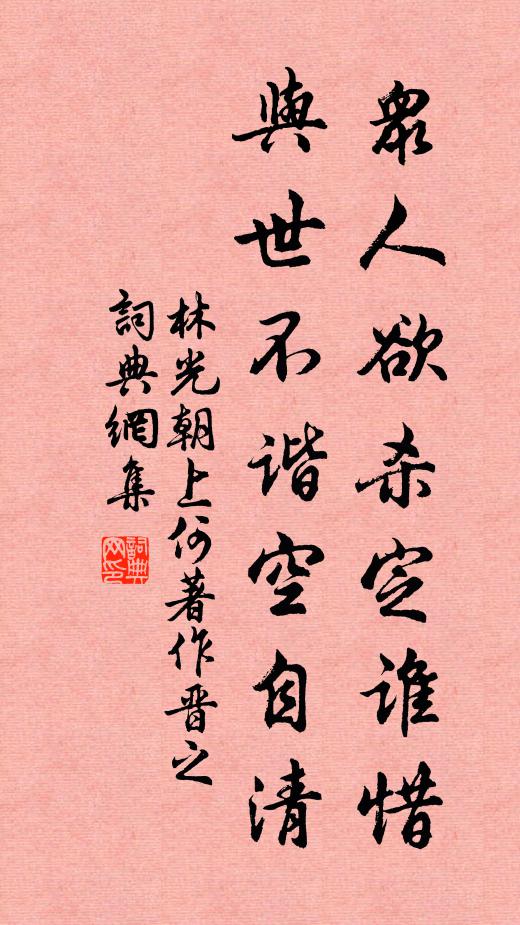 眾人欲杀定誰惜
與世不谐空自清
林光朝上何著作晋之
詞典網集
詞典网印